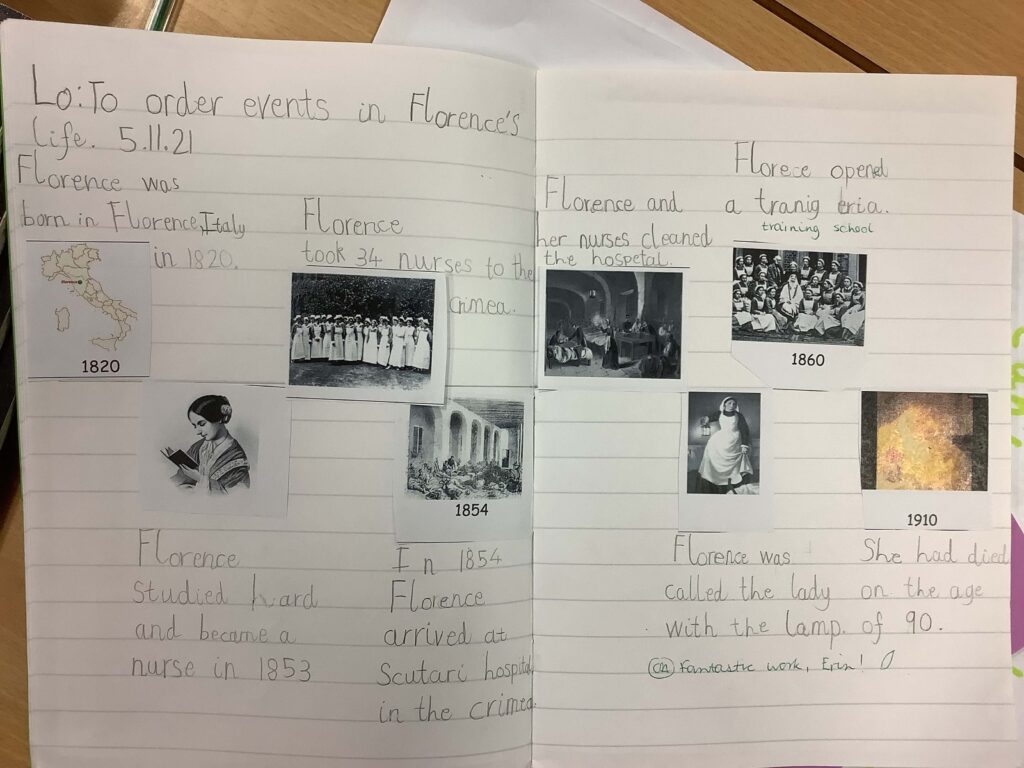 Lo: To order events in Florence's
life. 5.11.21
Florence was
born in Florence, Italy
in 1820.
Florence
1820
Florence
took 34 nurses to the
crimea.
Florence
studied hard
and became a
nurse in 1853
1854
In 1854
Florence
arrived at
Scutari hospital
in the crimea.
Florense and
her nurses cleaned
the hospetal.
Florece opened
a tranig
training school
1860
Florence was
called the lady
with the lamp.
1910
She had died
on the age
of 90.
Fantastic work, Erin!